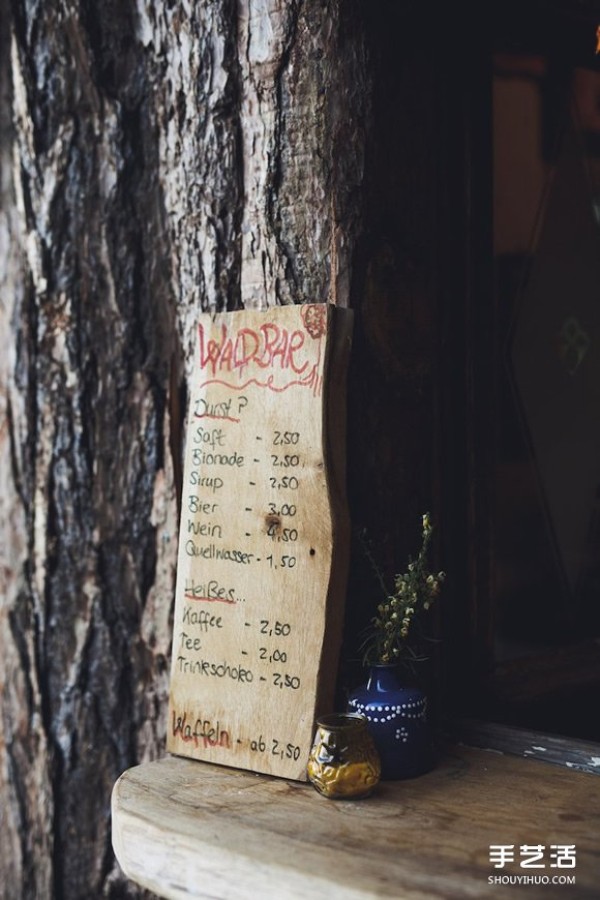 WALDBAR
Durst?
Saft - 2,50
Bionade - 2,50
Sirup - 2,50
Bier - 3,00
Wein - 4,50
Quellwasser - 1,50
Heißes...
Kaffee - 2,50
Tee - 2,00
Trinkschoko - 2,50
Waffeln - ab 2,50
手艺活
SHOUYIHUO.COM